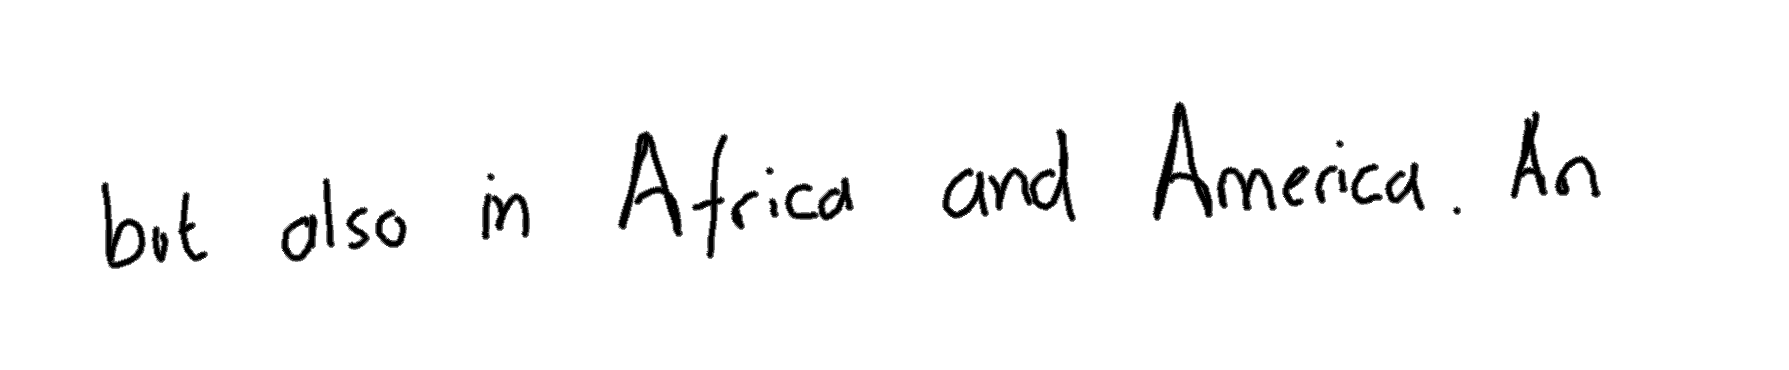 but also in Africa and America. An